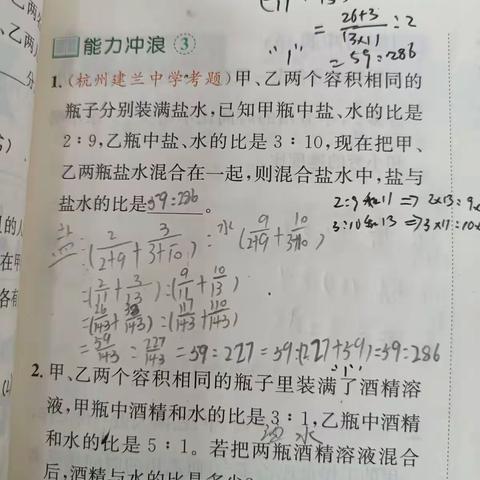 = 26+3/13×11 : 2
"1" = 59:286
能力冲浪 3
1.(杭州建兰中学考题)甲、乙两个容积相同的
瓶子分别装满盐水,已知甲瓶中盐、水的比是
2∶9,乙瓶中盐、水的比是 3∶10,现在把甲、
乙两瓶盐水混合在一起,则混合盐水中,盐与
盐水的比是59:286。
2:9和11 ⇒ 2×13=9×
3:10和13 ⇒ 3×11=10×
盐:(2/2+9 + 3/3+10):水(9/2+9 + 10/3+10)
=(2/11+3/13):(9/11+10/13)
=(26/143+33/143):(117/143+110/143)
=59/143:227/143=59:227=59:(227+59)=59:286
"1"
2.甲、乙两个容积相同的瓶子里装满了酒精溶
液,甲瓶中酒精和水的比是 3∶1,乙瓶中酒精
和水的比是 5∶1。若把两瓶酒精溶液混合
后,酒精与水的比是多少?